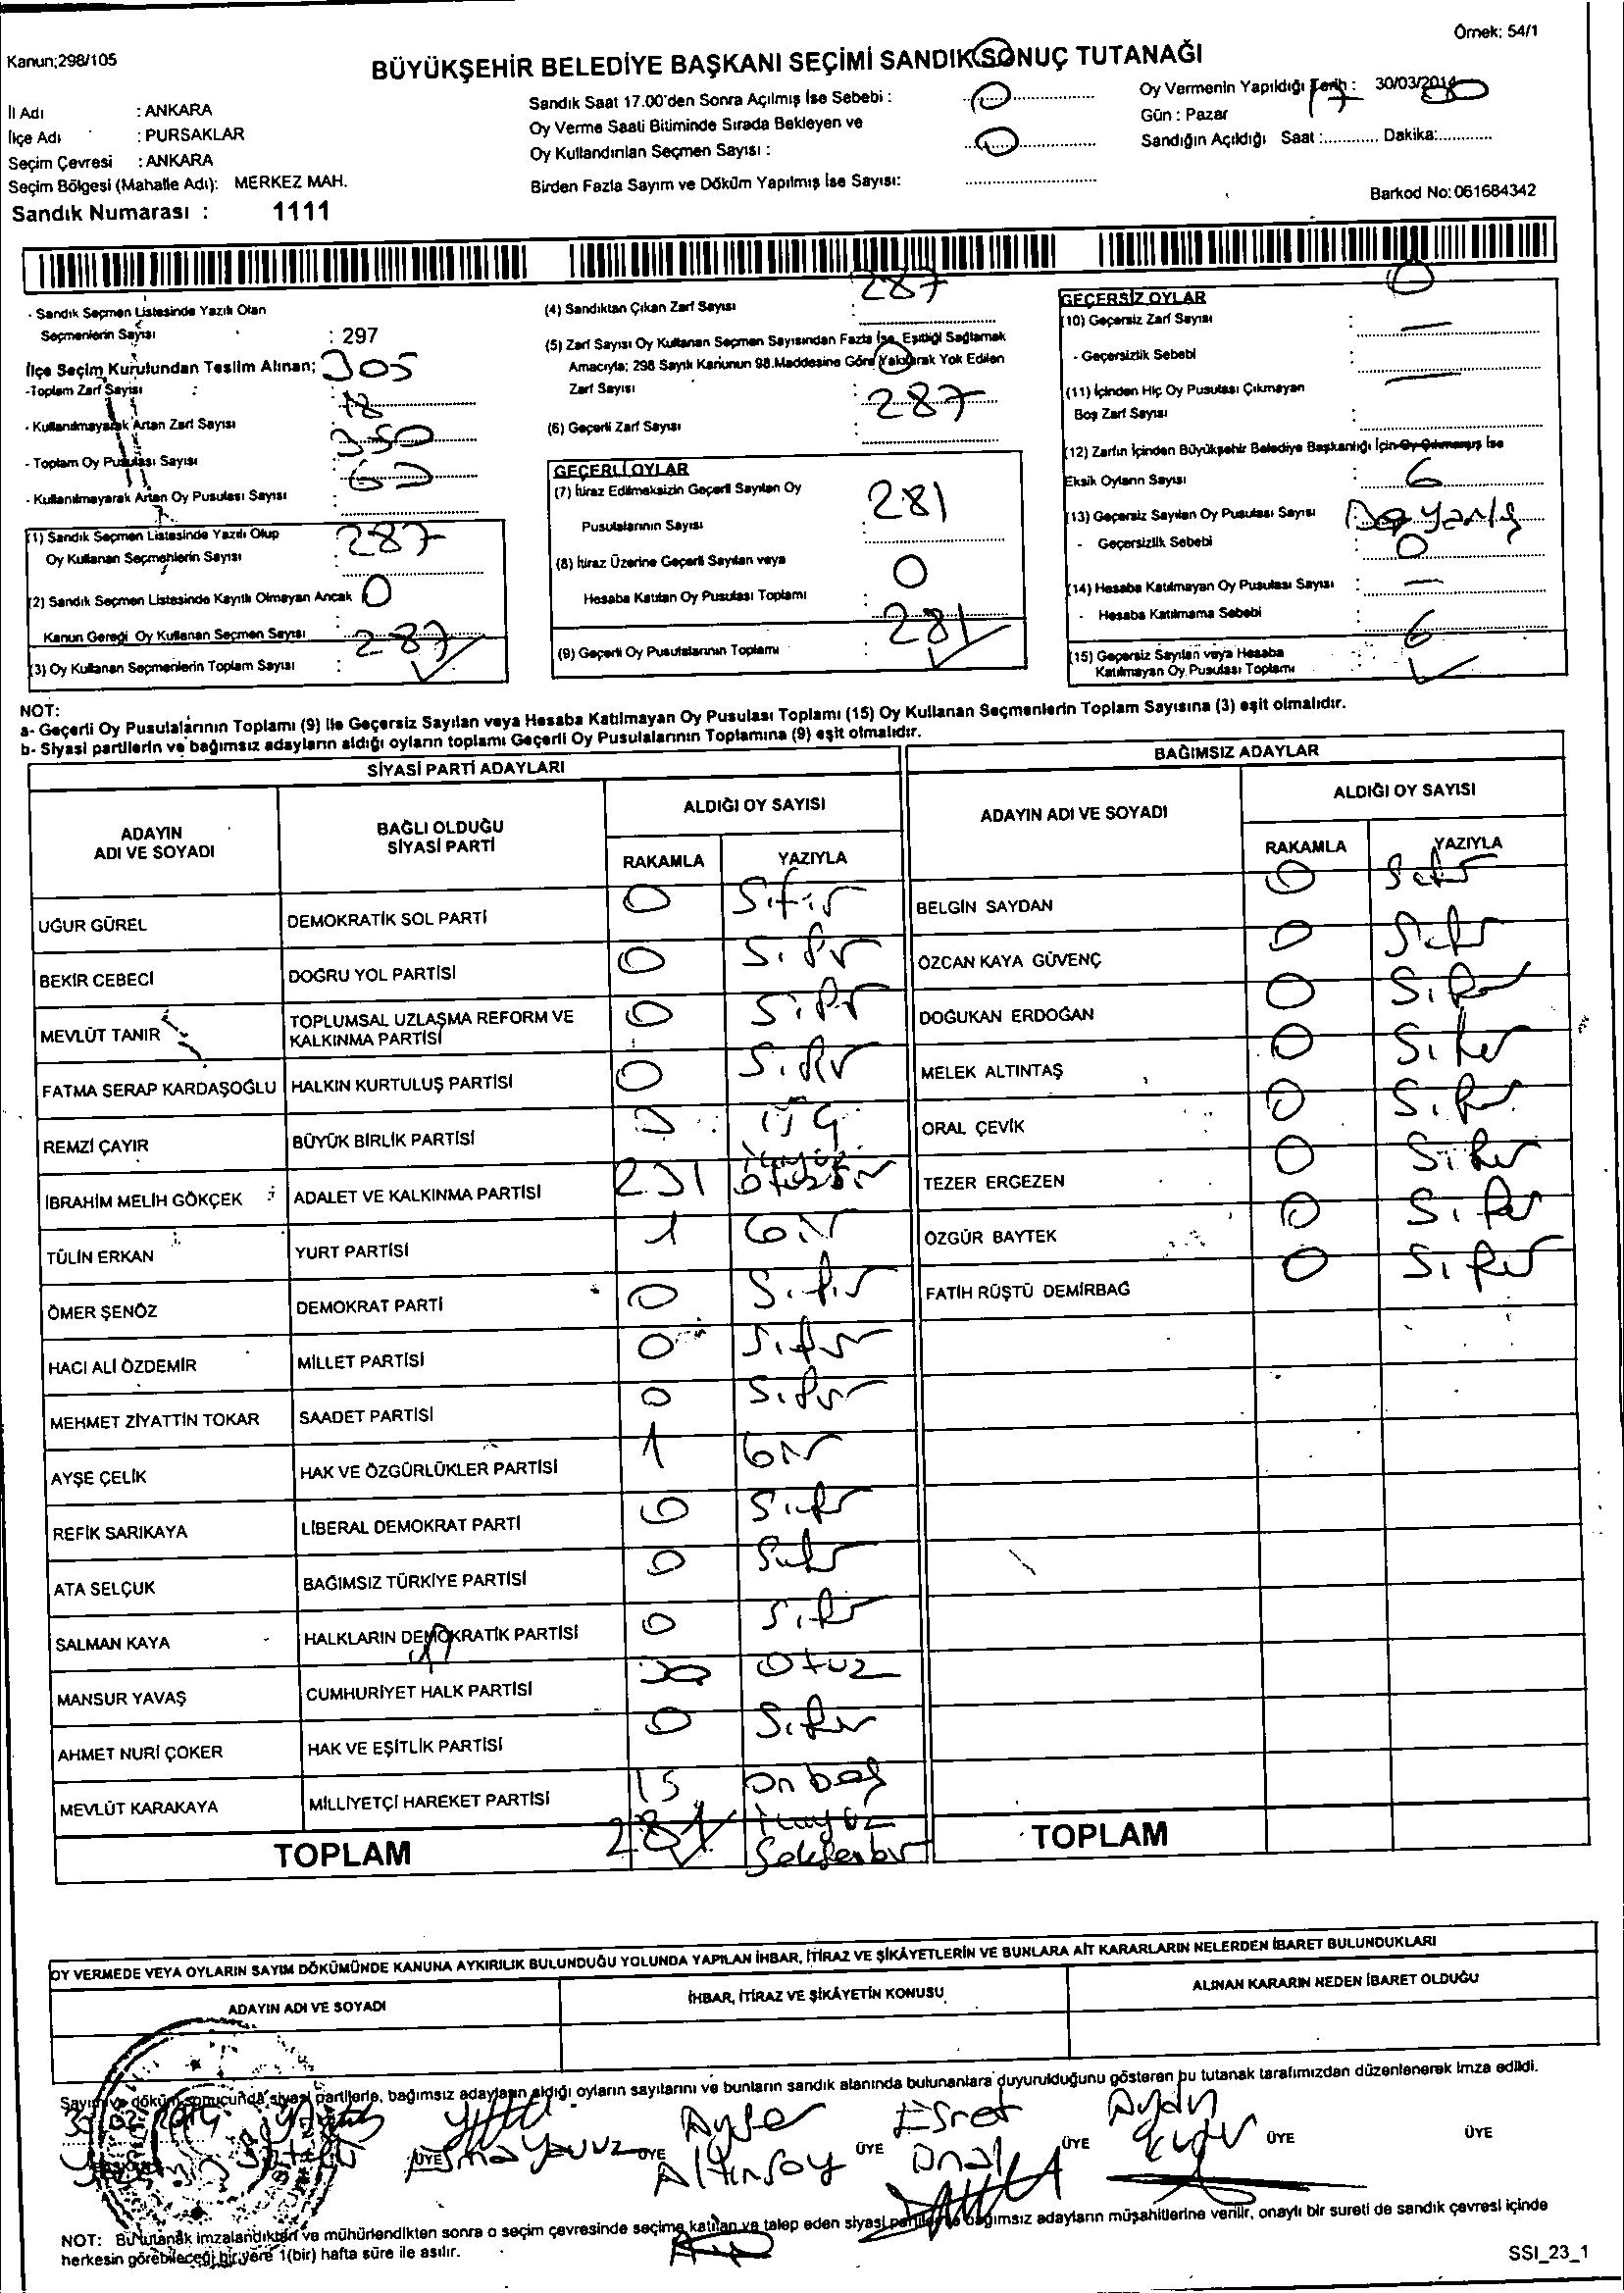 Örnek: 54/1
Kanun;298/105
BÜYÜKŞEHİR BELEDİYE BAŞKANI SEÇİMİ SANDIK SONUÇ TUTANAĞI
İl Adı : ANKARA
İlçe Adı : PURSAKLAR
Seçim Çevresi : ANKARA
Seçim Bölgesi (Mahalle Adı): MERKEZ MAH.
Sandık Numarası : 1111
Sandık Saat 17.00'den Sonra Açılmış İse Sebebi : 0
Oy Verme Saati Bitiminde Sırada Bekleyen ve
Oy Kullandırılan Seçmen Sayısı : 0
Birden Fazla Sayım ve Döküm Yapılmış İse Sayısı:
Oy Vermenin Yapıldığı Tarih : 30/03/2014
Gün : Pazar
Sandığın Açıldığı Saat : 17 Dakika: 00
Barkod No: 061684342
- Sandık Seçmen Listesinde Yazılı Olan
Seçmenlerin Sayısı : 297
İlçe Seçim Kurulundan Teslim Alınan;
-Toplam Zarf Sayısı : 305
- Kullanılmayarak Artan Zarf Sayısı 18
- Toplam Oy Pusulası Sayısı 350
- Kullanılmayarak Artan Oy Pusulası Sayısı : 63
(1) Sandık Seçmen Listesinde Yazılı Olup
Oy Kullanan Seçmenlerin Sayısı : 287
(2) Sandık Seçmen Listesinde Kayıtlı Olmayan Ancak
Kanun Gereği Oy Kullanan Seçmen Sayısı 0
(3) Oy Kullanan Seçmenlerin Toplam Sayısı : 287
(4) Sandıktan Çıkan Zarf Sayısı : 287
(5) Zarf Sayısı Oy Kullanan Seçmen Sayısından Fazla İse, Eşitliği Sağlamak
Amacıyla; 298 Sayılı Kanunun 98.Maddesine Göre Yakılarak Yok Edilen
Zarf Sayısı : 0
(6) Geçerli Zarf Sayısı : 287
GEÇERLİ OYLAR
(7) İtiraz Edilmeksizin Geçerli Sayılan Oy
Pusulalarının Sayısı : 281
(8) İtiraz Üzerine Geçerli Sayılan veya
Hesaba Katılan Oy Pusulası Toplamı : 0
(9) Geçerli Oy Pusulalarının Toplamı : 281
GEÇERSİZ OYLAR
(10) Geçersiz Zarf Sayısı : 0
- Geçersizlik Sebebi : —
(11) İçinden Hiç Oy Pusulası Çıkmayan
Boş Zarf Sayısı : —
(12) Zarfın İçinden Büyükşehir Belediye Başkanlığı İçin Oy Çıkmamış İse
Eksik Oyların Sayısı :
(13) Geçersiz Sayılan Oy Pusulası Sayısı : 6
- Geçersizlik Sebebi :
(14) Hesaba Katılmayan Oy Pusulası Sayısı : 0
- Hesaba Katılmama Sebebi : —
(15) Geçersiz Sayılan veya Hesaba
Katılmayan Oy Pusulası Toplamı : 6
NOT:
a- Geçerli Oy Pusulalarının Toplamı (9) ile Geçersiz Sayılan veya Hesaba Katılmayan Oy Pusulası Toplamı (15) Oy Kullanan Seçmenlerin Toplam Sayısına (3) eşit olmalıdır.
b- Siyasi partilerin ve bağımsız adayların aldığı oyların toplamı Geçerli Oy Pusulalarının Toplamına (9) eşit olmalıdır.
SİYASİ PARTİ ADAYLARI
ADAYIN ADI VE SOYADI BAĞLI OLDUĞU SİYASİ PARTİ ALDIĞI OY SAYISI
RAKAMLA YAZIYLA
UĞUR GÜREL DEMOKRATİK SOL PARTİ 0 Sıfır
BEKİR CEBECİ DOĞRU YOL PARTİSİ 0 Sıfır
MEVLÜT TANIR TOPLUMSAL UZLAŞMA REFORM VE KALKINMA PARTİSİ 0 Sıfır
FATMA SERAP KARDAŞOĞLU HALKIN KURTULUŞ PARTİSİ 0 Sıfır
REMZİ ÇAYIR BÜYÜK BİRLİK PARTİSİ 3 üç
İBRAHİM MELİH GÖKÇEK ADALET VE KALKINMA PARTİSİ 231 ikiyüz otuzbir
TÜLİN ERKAN YURT PARTİSİ 1 bir
ÖMER ŞENÖZ DEMOKRAT PARTİ 0 Sıfır
HACI ALİ ÖZDEMİR MİLLET PARTİSİ 0 Sıfır
MEHMET ZİYATTİN TOKAR SAADET PARTİSİ 0 Sıfır
AYŞE ÇELİK HAK VE ÖZGÜRLÜKLER PARTİSİ 1 bir
REFİK SARIKAYA LİBERAL DEMOKRAT PARTİ 0 Sıfır
ATA SELÇUK BAĞIMSIZ TÜRKİYE PARTİSİ 0 Sıfır
SALMAN KAYA HALKLARIN DEMOKRATİK PARTİSİ 0 Sıfır
MANSUR YAVAŞ CUMHURİYET HALK PARTİSİ 30 Otuz
AHMET NURİ ÇOKER HAK VE EŞİTLİK PARTİSİ 0 Sıfır
MEVLÜT KARAKAYA MİLLİYETÇİ HAREKET PARTİSİ 15 On beş
TOPLAM 281 ikiyüz Seksenbir
BAĞIMSIZ ADAYLAR
ADAYIN ADI VE SOYADI ALDIĞI OY SAYISI
RAKAMLA YAZIYLA
BELGİN SAYDAN 0 Sıfır
ÖZCAN KAYA GÜVENÇ 0 Sıfır
DOĞUKAN ERDOĞAN 0 Sıfır
MELEK ALTINTAŞ 0 Sıfır
ORAL ÇEVİK 0 Sıfır
TEZER ERGEZEN 0 Sıfır
ÖZGÜR BAYTEK 0 Sıfır
FATİH RÜŞTÜ DEMİRBAĞ 0 Sıfır
TOPLAM
OY VERMEDE VEYA OYLARIN SAYIM DÖKÜMÜNDE KANUNA AYKIRILIK BULUNDUĞU YOLUNDA YAPILAN İHBAR, İTİRAZ VE ŞİKÂYETLERİN VE BUNLARA AİT KARARLARIN NELERDEN İBARET BULUNDUKLARI
ADAYIN ADI VE SOYADI İHBAR, İTİRAZ VE ŞİKÂYETİN KONUSU ALINAN KARARIN NEDEN İBARET OLDUĞU
Sayım ve döküm sonucunda siyasi partilerle, bağımsız adayların aldığı oyların sayılarını ve bunların sandık alanında bulunanlara duyurulduğunu gösteren bu tutanak tarafımızdan düzenlenerek imza edildi.
Ayşe Eşref Aydın
ÜYE ÜYE ÜYE ÜYE ÜYE ÜYE
Altınsoy Ünal
NOT: Bu tutanak imzalandıktan ve mühürlendikten sonra o seçim çevresinde seçime katılan ve talep eden siyasi partiler ve bağımsız adayların müşahitlerine verilir, onaylı bir sureti de sandık çevresi içinde
herkesin görebileceği bir yere 1(bir) hafta süre ile asılır.
SSI_23_1